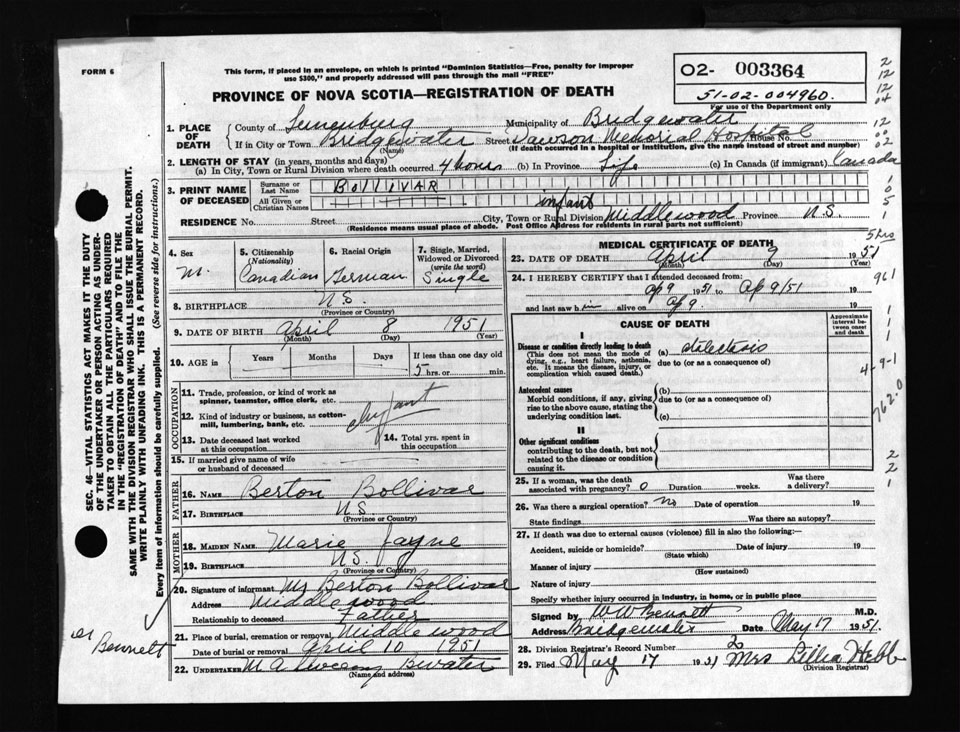 FORM 6
This form, if placed in an envelope, on which is printed "Dominion Statistics—Free, penalty for improper
use $300," and properly addressed will pass through the mail "FREE"
PROVINCE OF NOVA SCOTIA—REGISTRATION OF DEATH
02- 003364
51-02-004960.
For use of the Department only
2
12
12
04
1. PLACE OF DEATH
County of Lunenburg Municipality of Bridgewater 12
If in City or Town Bridgewater (Name) Street Dawson Memorial Hospital House No. 00
(If death occurred in a hospital or institution, give the name instead of street and number) 02
2. LENGTH OF STAY (in years, months and days)
(a) In City, Town or Rural Division where death occurred 4 hours (b) In Province Life (c) In Canada (if immigrant) Canada
3. PRINT NAME OF DECEASED
Surname or Last Name BOLLIVAR 1
All Given or Christian Names infant 0
5
RESIDENCE No. Street City, Town or Rural Division Middlewood Province N.S. 1
(Residence means usual place of abode. Post Office Address for residents in rural parts not sufficient)
5 hrs
4. Sex M.
5. Citizenship (Nationality) Canadian
6. Racial Origin German
7. Single, Married, Widowed or Divorced (write the word) Single
8. BIRTHPLACE N.S.
(Province or Country)
9. DATE OF BIRTH April 8 1951
(Month) (Day) (Year)
10. AGE in Years Months Days If less than one day old
5 hrs. or min.
OCCUPATION
11. Trade, profession, or kind of work as
spinner, teamster, office clerk, etc.
12. Kind of industry or business, as cotton-
mill, lumbering, bank, etc. Infant
13. Date deceased last worked
at this occupation
14. Total yrs. spent in
this occupation
15. If married give name of wife
or husband of deceased
FATHER
16. NAME Berton Bollivar
17. BIRTHPLACE N.S.
(Province or Country)
MOTHER
18. MAIDEN NAME Marie Jayne
19. BIRTHPLACE N.S.
(Province or Country)
20. Signature of informant Mr Berton Bollivar
Address Middlewood
Relationship to deceased Father
21. Place of burial, cremation or removal Middlewood
Date of burial or removal April 10 1951
22. UNDERTAKER M A Bwater
(Name and address)
MEDICAL CERTIFICATE OF DEATH
23. DATE OF DEATH April 9 1951
(Month) (Day) (Year)
24. I HEREBY CERTIFY that I attended deceased from:
Ap 9 1951 to Ap 9/51 961
and last saw him alive on Ap 9. 19
CAUSE OF DEATH
Approximate interval between onset and death
1
1
1
I
Disease or condition directly leading to death
(This does not mean the mode of
dying, e.g., heart failure, asthenia,
etc. It means the disease, injury, or
complication which caused death.)
(a) atelectasis
due to (or as a consequence of)
4-9-1
Antecedent causes
Morbid conditions, if any, giving
rise to the above cause, stating the
underlying condition last.
(b)
due to (or as a consequence of)
(c)
762.0
II
Other significant conditions
contributing to the death, but not
related to the disease or condition
causing it.
2
2
1
25. If a woman, was the death
associated with pregnancy? 0 Duration weeks. Was there
a delivery?
26. Was there a surgical operation? no Date of operation 19
State findings Was there an autopsy?
27. If death was due to external causes (violence) fill in also the following:—
Accident, suicide or homicide? Date of injury 19
(State which)
Manner of injury
(How sustained)
Nature of injury
Specify whether injury occurred in industry, in home, or in public place
Signed by W W Bennett M.D.
Address Bridgewater Date May 17 1951.
28. Division Registrar's Record Number 2
29. Filed May 17 1951 Mrs Lillia Hebb
(Division Registrar)
SEC. 46—VITAL STATISTICS ACT MAKES IT THE DUTY
OF THE UNDERTAKER OR PERSON ACTING AS UNDER-
TAKER TO OBTAIN ALL THE PARTICULARS REQUIRED
IN THE "REGISTRATION OF DEATH" AND TO FILE THE
SAME WITH THE DIVISION REGISTRAR WHO SHALL ISSUE THE BURIAL PERMIT.
WRITE PLAINLY WITH UNFADING INK. THIS IS A PERMANENT RECORD.
Every item of information should be carefully supplied. (See reverse side for instructions.)
Dr
Bennett